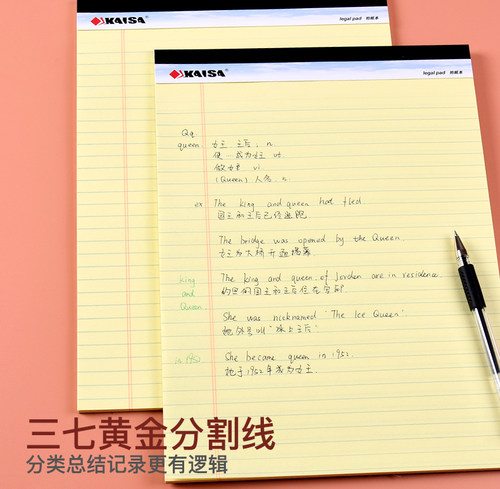 KAISA
legal pad 拍纸本
KAISA
legal pad 拍纸本
Qq
queen 女王,王后,n
使…成为女王 vt
做女王 vi
(Queen) 人名 n
ex The king and queen had fled.
国王和王后已经逃跑
The bridge was opened by the Queen
女王为大桥开通揭幕
king
and
Queen
The king and queen of Jordan are in residence.
约旦的国王和王后住在宫邸
She was nicknamed 'The Ice Queen'
她外号叫"冰上王后"
She became queen in 1952.
她于1952年成为女王.
三七黄金分割线
分类总结记录更有逻辑